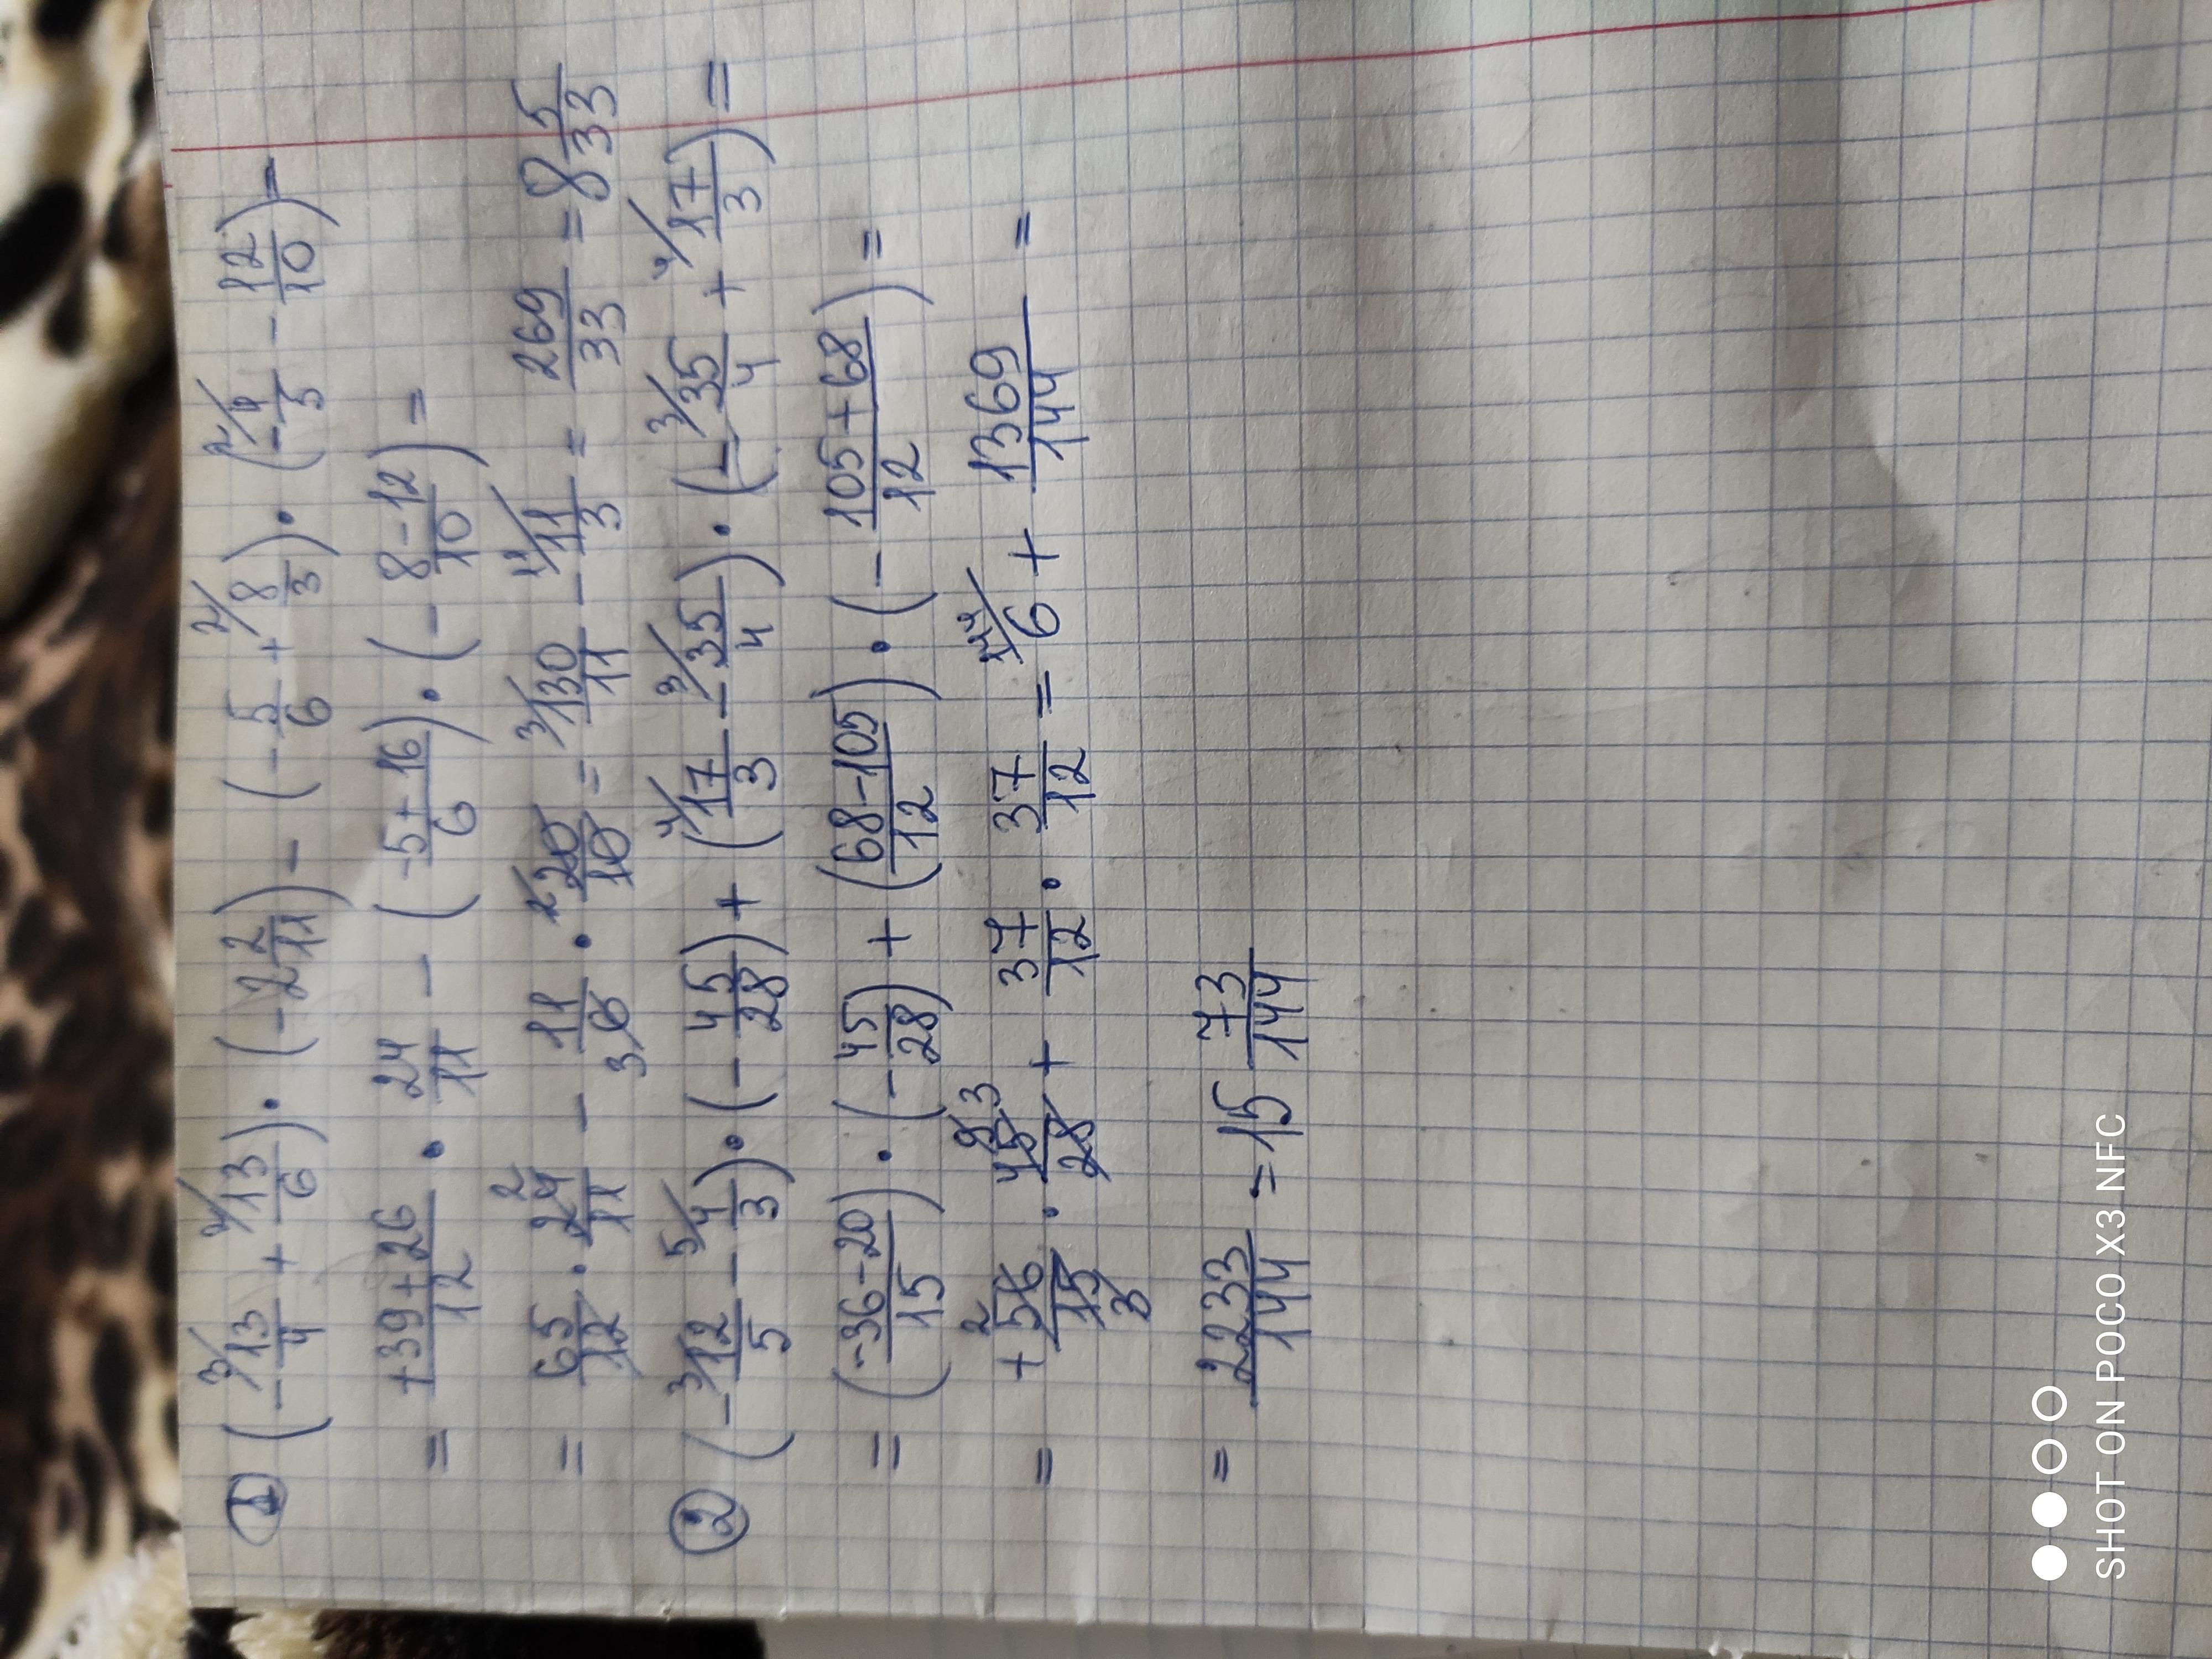 ① (-³⁄13/4 + ²⁄13/6) · (-2 2/11) - (-5/6 + ²⁄8/3) · (²⁄-4/5 - 12/10) =
= +39+26/12 · 24/11 - (-5+16/6) · (-8-12/10) =
= 65/12 · 24²/11 - 11/6 3 · 20²/10 = ³⁄130/11 - ¹¹⁄11/3 = 269/33 = 8 5/33
② (-³⁄12/5 - ⁵⁄4/3) · (-45/28) + (⁴⁄17/3 - ³⁄35/4) · (-³⁄35/4 + ⁴⁄17/3) =
= (-36-20/15) · (-45/28) + (68-105/12) · (-105+68/12) =
= +56²/15 3 · 45 9 3/28 + 37/12 · 37/12 = ¹⁴⁴⁄6 + 1369/144 =
= 2233/144 = 15 73/144
SHOT ON POCO X3 NFC